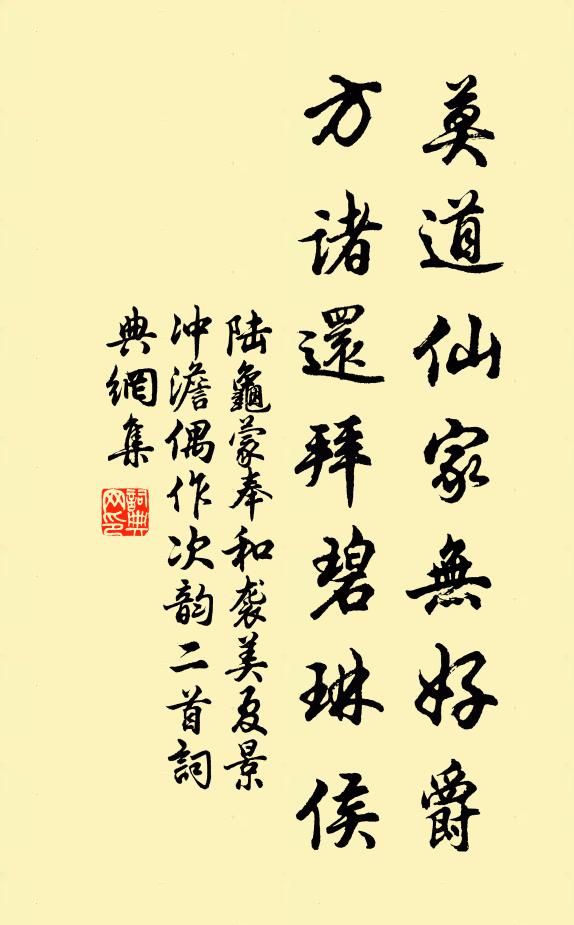 莫道仙家無好爵
方诸還拜碧琳侯
陆龜蒙奉和袭美夏景
冲澹偶作次韵二首詞
典網集
詞典网印